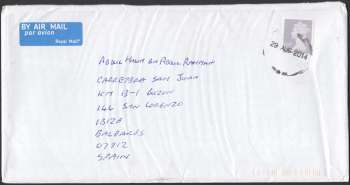 BY AIR MAIL
par avion
Royal Mail
29 AUG 2014
ABDUL HALIM BIN ABDUL RAHMAN
CARRETERA SAN JUAN
KM 13-1 BUZON
144 SAN LORENZO
IBIZA
BALEARES
07812
SPAIN